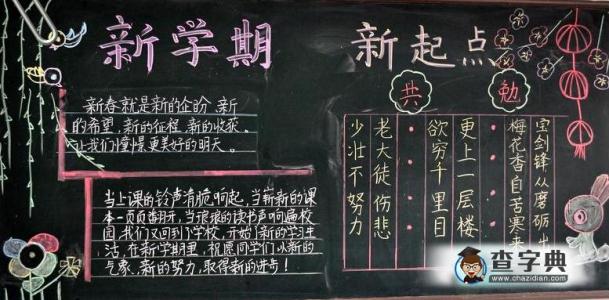 新学期 新起点
新春就是新的企盼，新
的希望，新的征程，新的收获。
让我们憧憬更美好的明天。
当上课的铃声清脆响起，当崭新的课
本一页页翻开，当琅琅的读书声响遍校
园，我们又回到了学校，开始了新的学习生
活，在新学期里，祝愿同学们以新的
气象，新的努力，取得新的进步！
共勉
宝剑锋从磨砺出
梅花香自苦寒来
更上一层楼
欲穷千里目
老大徒伤悲
少壮不努力
查字典
www.chazidian.com